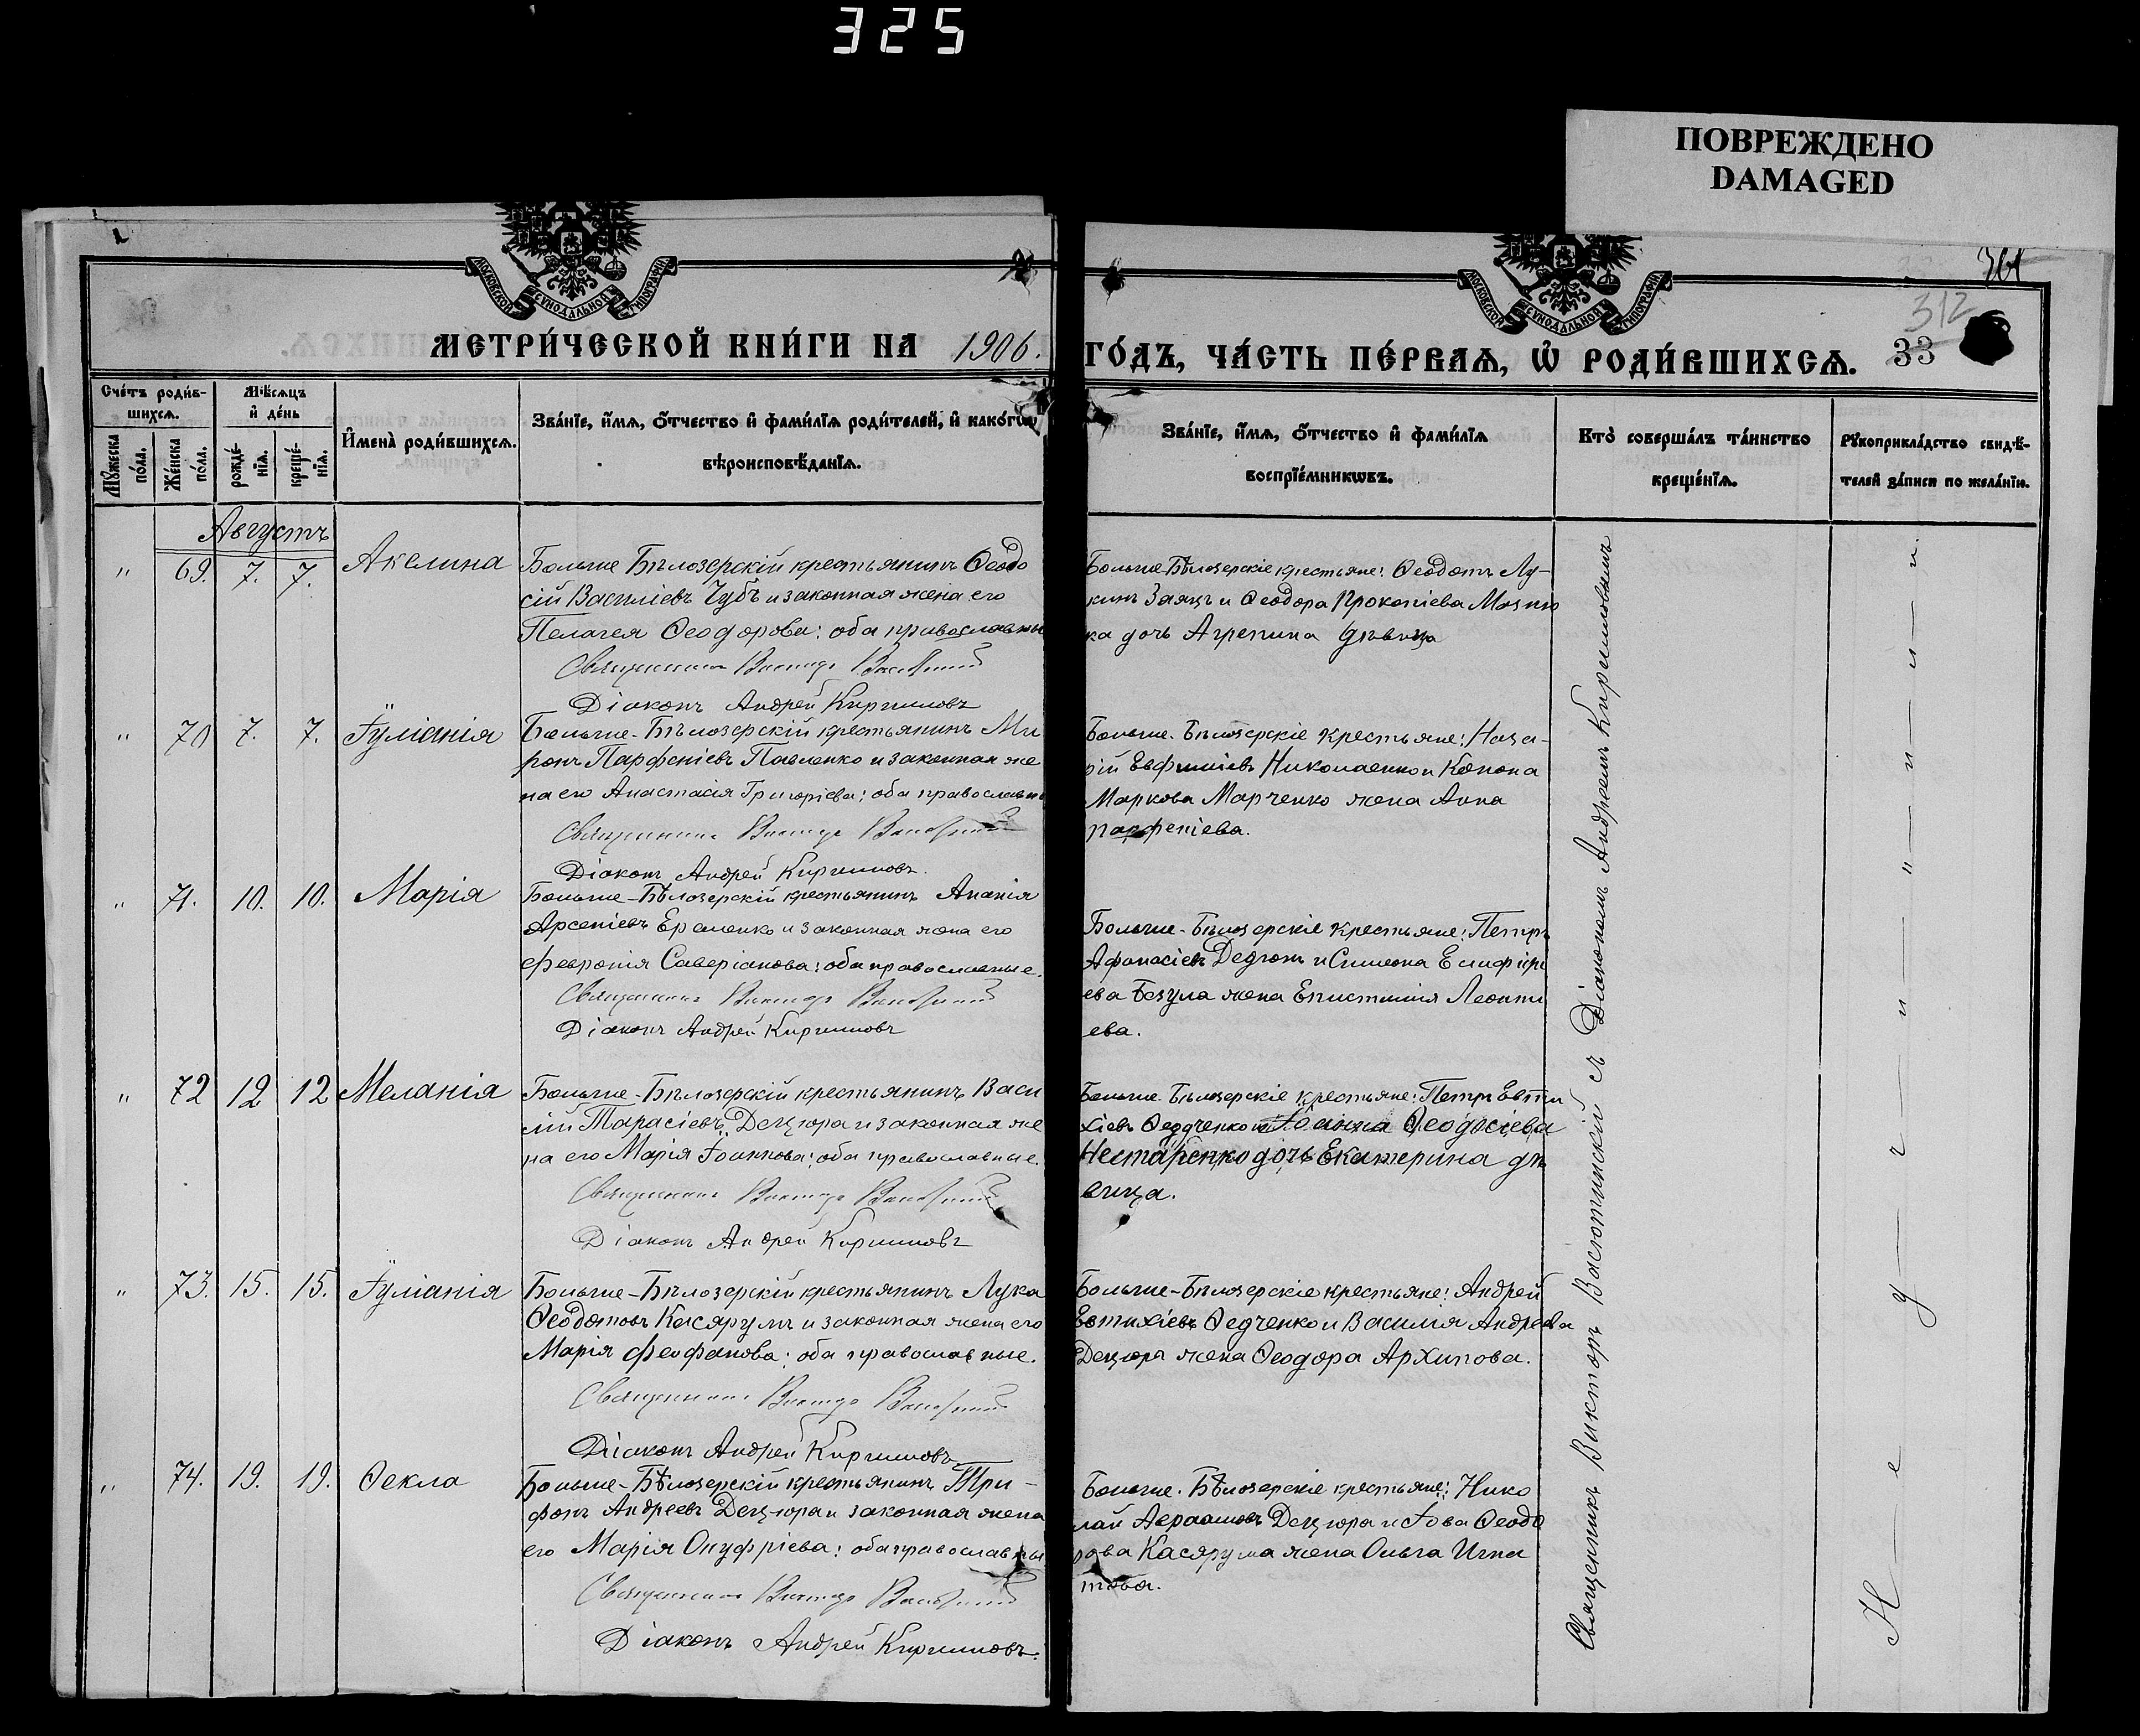 325
ПОВРЕЖДЕНО
DAMAGED
МОСКОВСКОЙ СѴНОДАЛЬНОЙ ТИПОГРАФІИ
МОСКОВСКОЙ СѴНОДАЛЬНОЙ ТИПОГРАФІИ
312
33
МЕТРИ́ЧЕСКОЙ КНИ́ГИ НА 1906.
ГО́ДЪ, ЧА́СТЬ ПЕ́РВАѦ, Ѡ҆ РОДИ́ВШИХСѦ.
Сче́тъ роди́в-
шихсѧ.
Мꙋ́жеска по́ла.
Же́нска по́ла.
Мѣ́сѧцъ
и҆ де́нь
рожде́-
нїѧ.
креще́-
нїѧ.
И҆мена̀ роди́вшихсѧ.
Зва́нїе, и҆́мѧ, ѻ҆́тчество и҆ фами́лїѧ роди́телей, и҆ како́гѡ
вѣроисповѣ́данїѧ.
Зва́нїе, и҆́мѧ, ѻ҆́тчество и҆ фами́лїѧ
воспрїе́мникѡвъ.
Кто̀ соверша́лъ та́инство
креще́нїѧ.
Рꙋкоприкла́дство свидѣ́-
телей за́писи по жела́нїю.
Августъ
" 69. 7. 7. Акелина
Больше Бѣлозерскій крестьянинъ Ѳеодо
сій Василіевъ Чубъ и законная жена его
Пелагея Ѳеодорова: оба православны
Священникъ Викторъ Васютинскій
Діаконъ Андрей Кириловъ
Больше-Бѣлозерскіе крестьяне: Ѳеодотъ Лу-
кинъ Заяцъ и Ѳеодора Прокопіева
ка дочь Агрепина дѣвица
" 70 7. 7. Іуліанія
Больше-Бѣлозерскій крестьянинъ Ми
ронъ Парфеніевъ Павленко и законная же
на его Анастасія Григоріева: оба православны
Священникъ Викторъ Васютинскій
Діаконъ Андрей Кириловъ.
Больше-Бѣлозерскіе крестьяне: Наза-
рій Евфиміевъ Николаенко и Конона
Маркова Марченко жена Анна
парфеніева.
" 71. 10. 10. Марія
Больше-Бѣлозерскій крестьянинъ Ананія
Арсеніевъ Еременко и законная жена его
Февронія Саверіанова: оба православные.
Священникъ Викторъ Васютинскій
Діаконъ Андрей Кириловъ
Больше-Бѣлозерскіе крестьяне: Петръ
Афанасіевъ Дедюкъ и Симеона
ева Безула жена Епистимія Леонти
ева.
" 72 12 12 Меланія
Больше-Бѣлозерскій крестьянинъ Васи
лій Тарасіевъ Децюра и законная же
на его Марія Іоаннова: оба православные.
Священникъ Викторъ Васютинскій
Діаконъ Андрей Кириловъ
Больше Бѣлозерскіе крестьяне: Петръ Евти
хіевъ Ѳедченко и Іоанна Ѳеодосіева
Нестаренко дочь Екатерина дѣ
вица.
" 73. 15. 15. Іуліанія
Больше-Бѣлозерскій крестьянинъ Лука
Ѳеодотовъ Касярумъ и законная жена его
Марія Феофанова: оба православные.
Священникъ Викторъ Васютинскій
Діаконъ Андрей Кириловъ
Больше-Бѣлозерскіе крестьяне: Андрей
Евтихіевъ Ѳедченко и Василія Андреева
Децюра жена Ѳеодора Архипова.
" 74. 19. 19. Ѳекла
Больше-Бѣлозерскій крестьянинъ Три-
фонъ Андреевъ Децюра и законная жена
его Марія Онуфріева: оба православны
Священникъ Викторъ Васютинскій
Діаконъ Андрей Кириловъ.
Больше-Бѣлозерскіе крестьяне: Нико
лай Авраамовъ Децюра и Іова Ѳеодо
рова Касярума жена Ольга Игна
това.
Священникъ Викторъ Васютинскій съ Діакономъ Андреемъ Кириловымъ